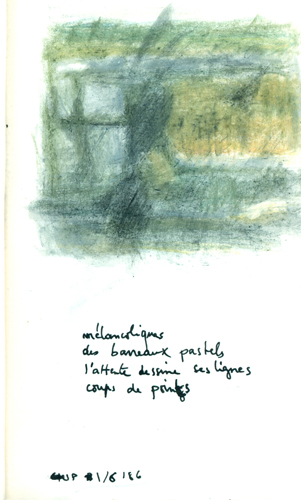 mélancoliques
des barreaux pastels
l'attente dessine ses lignes
coups de poings
1/6 186